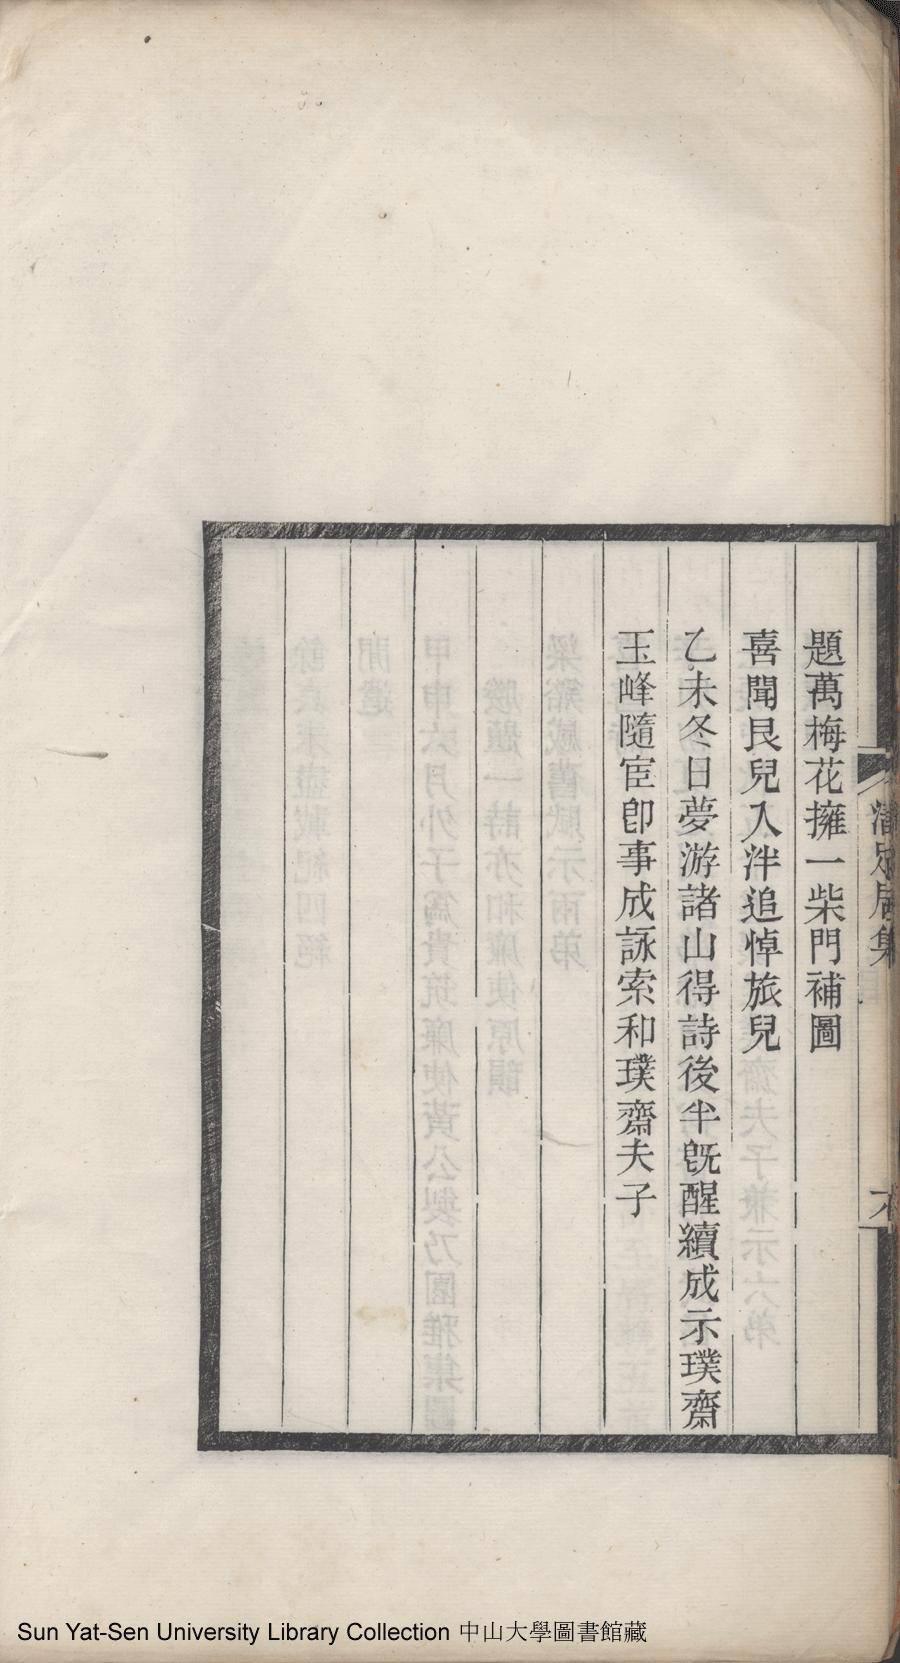 題萬梅花擁一柴門補圖
喜聞艮兒入泮追悼旅兒
乙未冬日夢游諸山得詩後半旣醒續成示璞齋
玉峰隨宦卽事成詠索和璞齋夫子
Sun Yat-Sen University Library Collection 中山大學圖書館藏